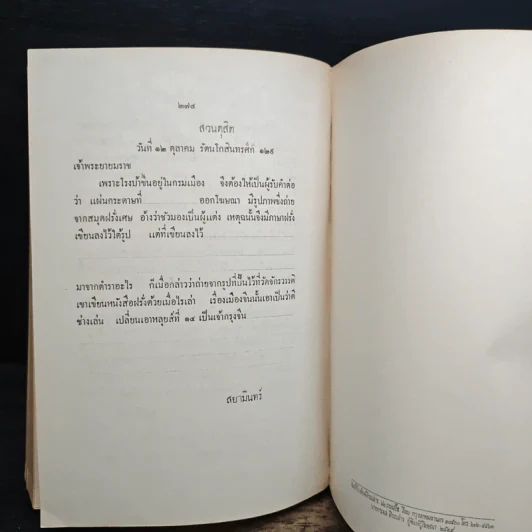 ๒๗๔
สวนดุสิต
วันที่ ๑๒ ตุลาคม รัตนโกสินทรศก ๑๒๙
เจ้าพระยายมราช
เพราะโรงบ้าขึ้นอยู่ในกรมเมือง จึงต้องให้เป็นผู้รับคำต่อ
ว่า แผ่นกระดาษที่ ออกโฆษณา มีรูปภาพซึ่งถ่าย
จากสมุดฝรั่งเศษ อ้างว่าชัวมองเป็นผู้แต่ง เหตุฉนั้นจึงมีภาษาฝรั่ง
เขียนลงไว้ใต้รูป แต่ที่เขียนลงไว้
มาจากตำราอะไร ก็เมื่อกล่าวว่าถ่ายจากรูปที่ปั้นไว้ที่วัดจักรวรรดิ
เขาเขียนหนังสือฝรั่งด้วยเมื่อไรเล่า เรื่องเมืองจีนนั้นเอาเป็นว่าดี
ช่างเล่น เปลี่ยนเอาหลุยส์ที่ ๑๔ เป็นเจ้ากรุงจีน
สยามินทร์